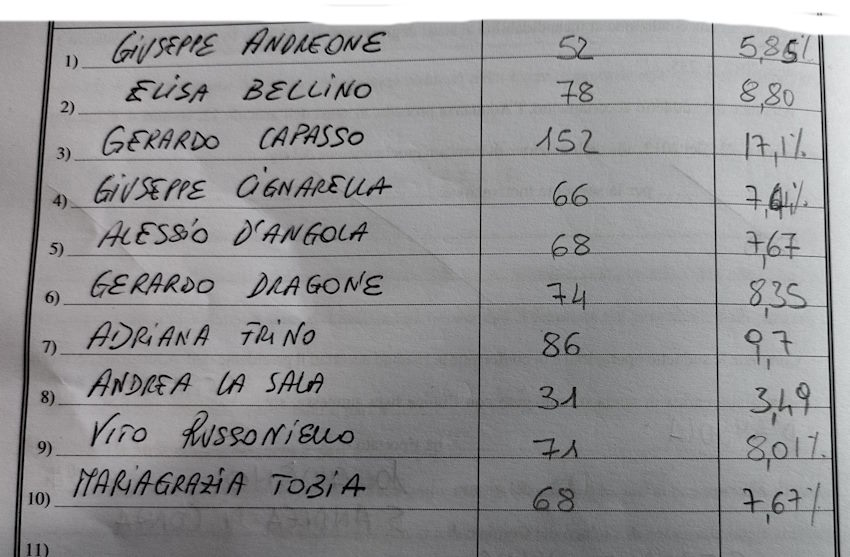 1) GIUSEPPE ANDREONE 52 5,85%
2) ELISA BELLINO 78 8,80
3) GERARDO CAPASSO 152 17,1%
4) GIUSEPPE CIGNARELLA 66
5) ALESSIO D'ANGOLA 68 7,67
6) GERARDO DRAGONE 74 8,35
7) ADRIANA FRINO 86 9,7
8) ANDREA LA SALA 31 3,49
9) VITO RUSSONIELLO 71 8,01%
10) MARIAGRAZIA TOBIA 68 7,67%
11)